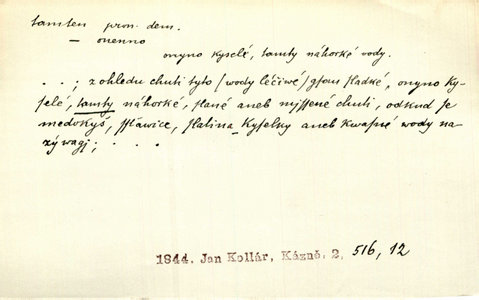 tamten pron. dem.
— onenno
onyno kyselé, tamty náhorké vody.
. . ; z ohledu chuti tyto (wody léčiwé) gsau sladké, onyno ky-
selé, tamty náhorké, slané aneb nyssené chuti, odkud se
medokyš, sstáwice, slatina, kyselky aneb kwasné wody na-
zýwagj; . . .
1844. Jan Kollár, Kázně. 2, 516, 12